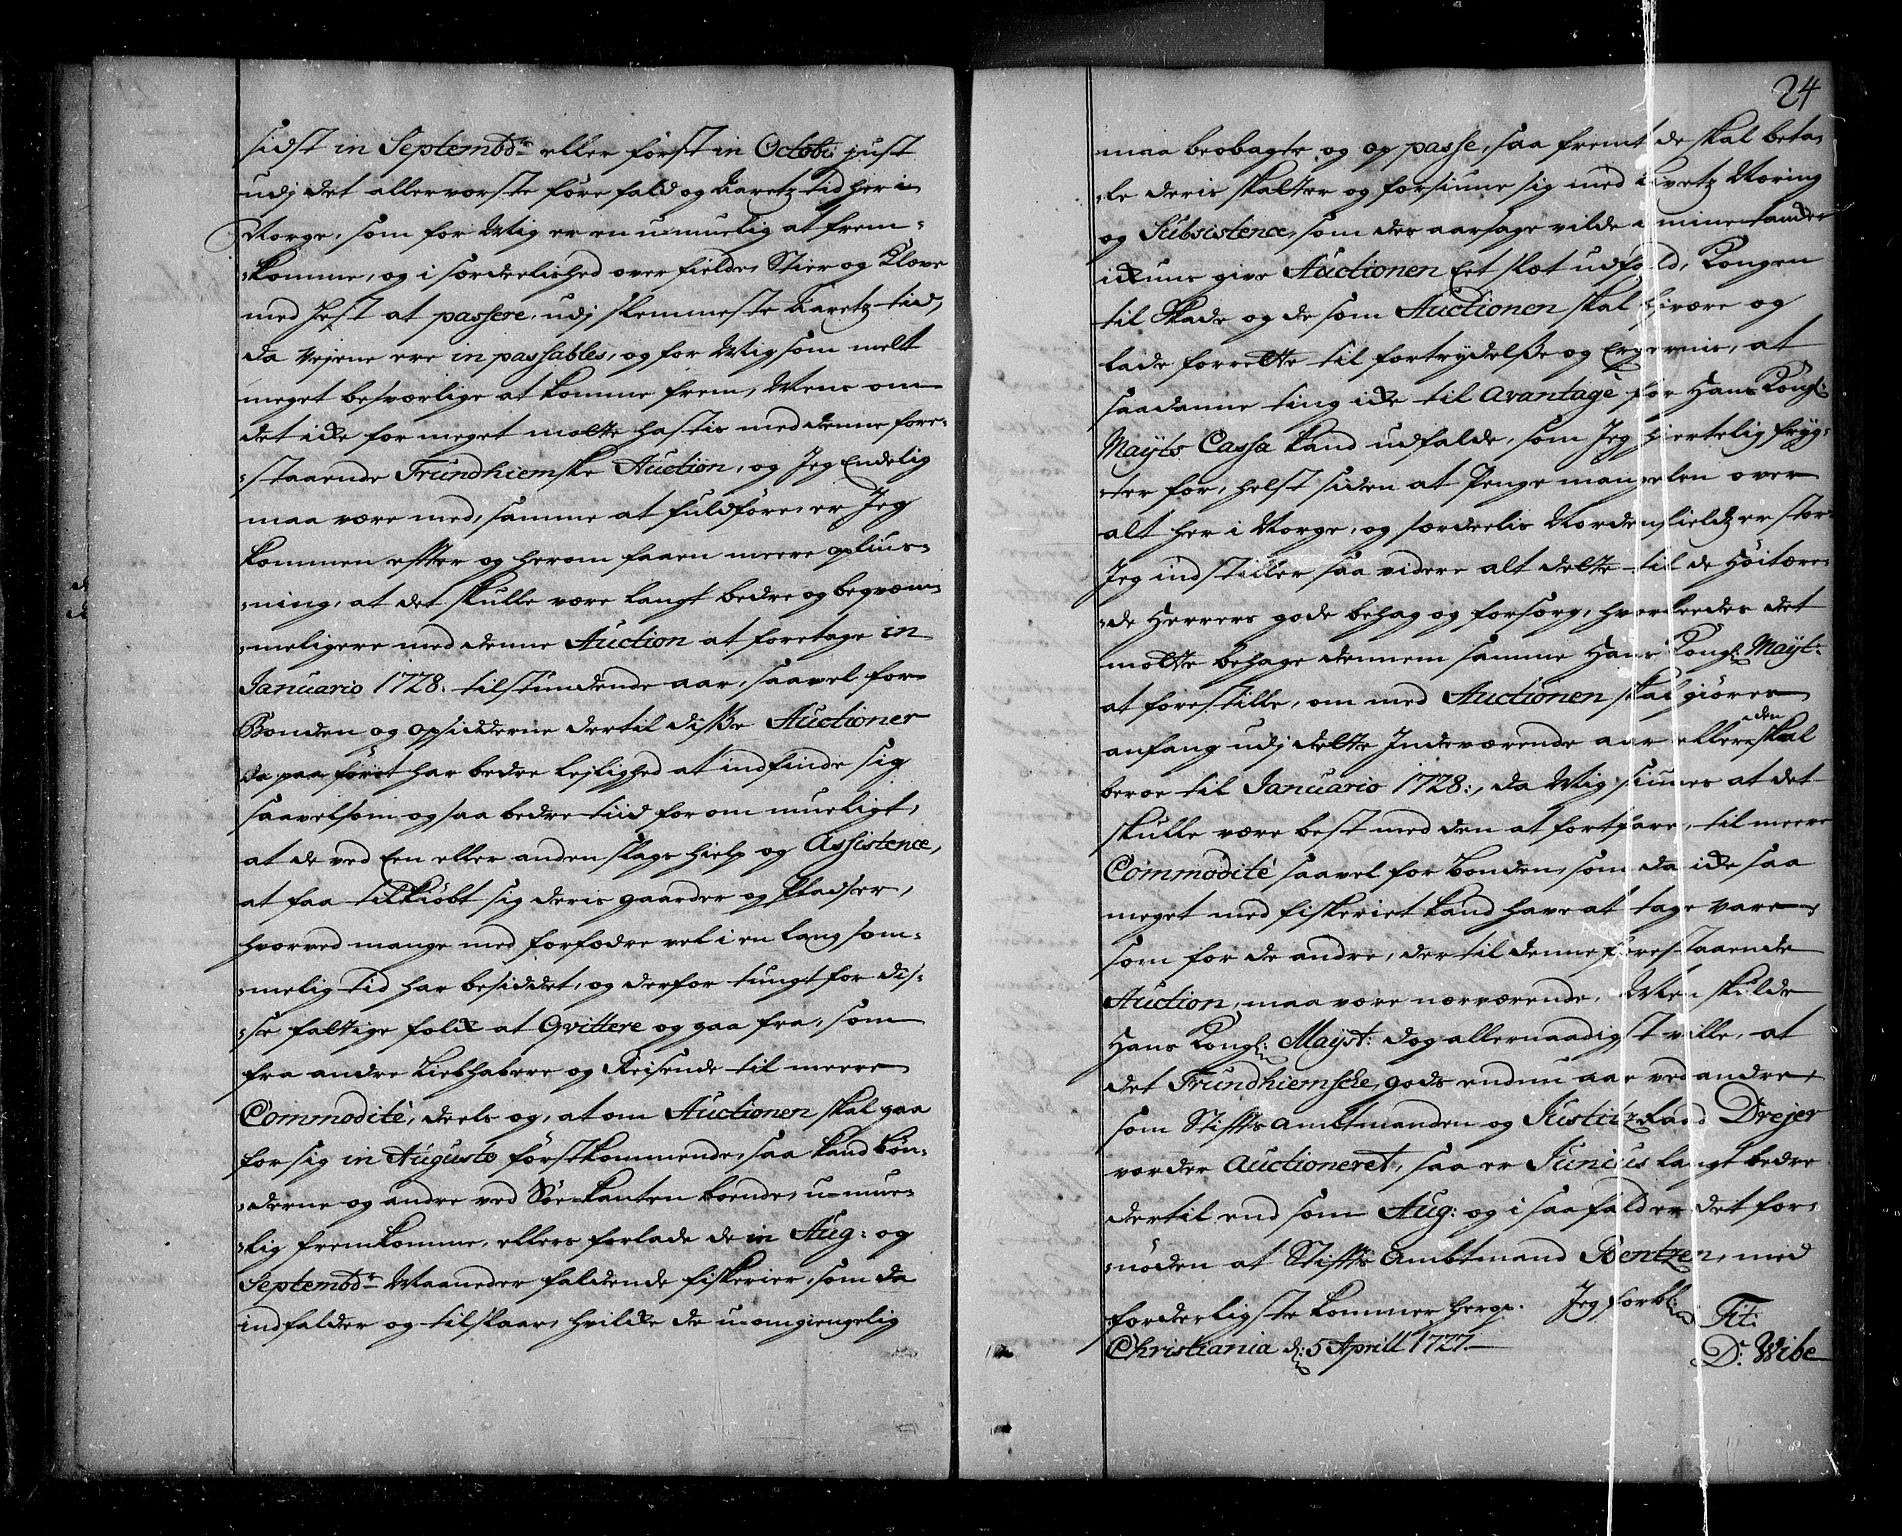 sidst in Septembr: eller först in Octob: just
udj det allerværste före fald og Aaretz tid her i
Norge, som for Mig er en u-muelig at frem-
komme, og i særdeelished over fielde, Stier og Klöve
med Hest at passere, udj slemmeste Aaretz-tid,
da Vejene ere inpassables, og for Mig som melt
meget besværlige at komme frem, Mens om
det icke for meget motte hastis med denne fore-
staaende Trundhiemske Auction, og Jeg Endelig
maa være med, samme at fuldföre, er Jeg
kommen efter og herom faaen meere oplius-
ning, at det skulle være langt bedre og beqvem-
meligere med denne Auction at foretage in
Januario 1728. tilstundende aar, saavel for
Bonden og opsidderne dertil disse Auctioner
da paa först har bedre lejlighed at indfinde sig
saavelsom og saa bedre tiid for om mueligt,
at de ved Een eller anden slags hielp og Assistence,
at faa tilkiöbt sig deris gaarder og Pladser,
hvorved mange med forfædre vel i en lang som-
melig tid har besiddet, og derfor tungt for dis-
se fattige folck at Qvittere og gaa fra, som
fra andre Liebhabere og Reisende til meere
Commodité, deels og, at om Auctionen skal gaa
for sig in Augusto förstkommende, saa kand Bön-
derne og andre ved Söe-kanten boende, u-mue-
lig fremkomme, ellers forlade de in Aug: og
Septembr Maaneder faldende fiskerier, som da
indfalder og tilslaar, hvilcke de u-omgiengelig
24
maa beobagte og op passe, saa fremt de skal beta-
le deris skatter og forsiune sig med Livetz Næring
og Subsistence, som des aarsage vilde i mine tancker
ickuns give Auctionen Eet slæt udfald, Kongen
til Skade og de som Auctionen skal hivære og
lade forrette til fortrydelsse og Ergernis, at
saadanne ting icke til Avantage for Hans Kongl:
Mayts Cassa kand udfalde, som Jeg hiertelig fryg-
ter for, helst siden at Penge mangelen over
alt her i Norge, og særdeelis Nordenfieldz er stor.
Jeg indstiller saa videre alt dette til de Höitære-
de Herrers gode behag og forsorg, hvorleedes det
motte behage dennem samme Hans Kongl: Mayt:
at forestille, om med Auctionen skal giöres
anfang udj dette Indeværende aar eller den skal
beroe til Januario 1728:, da Mig siunes at det
skulle være best med den at fortfare, til meere
Commodité saavel for Bonden, som da icke saa
meget med fiskeriet kand have at tage vare
som for de andre, der til denne forestaaende
Auction, maa være nærværende, Men skulde
Hans Kongl: Mayst: dog allernaadigst ville, at
det Trundhiemsche gods endnu i aar ved andre
som Stiffts ambtmanden og Justitz Raad Drejer
vorder Auctioneret, saa er Junius langt bedre
dertil end som Aug: og i saa fald er det for-
nöden at Stiffts Ambtmand Bentzen, med
forderligste kommer herop. Jeg forbl: Tit:
Christiania d: 5 Aprill 1727. D: Wibe